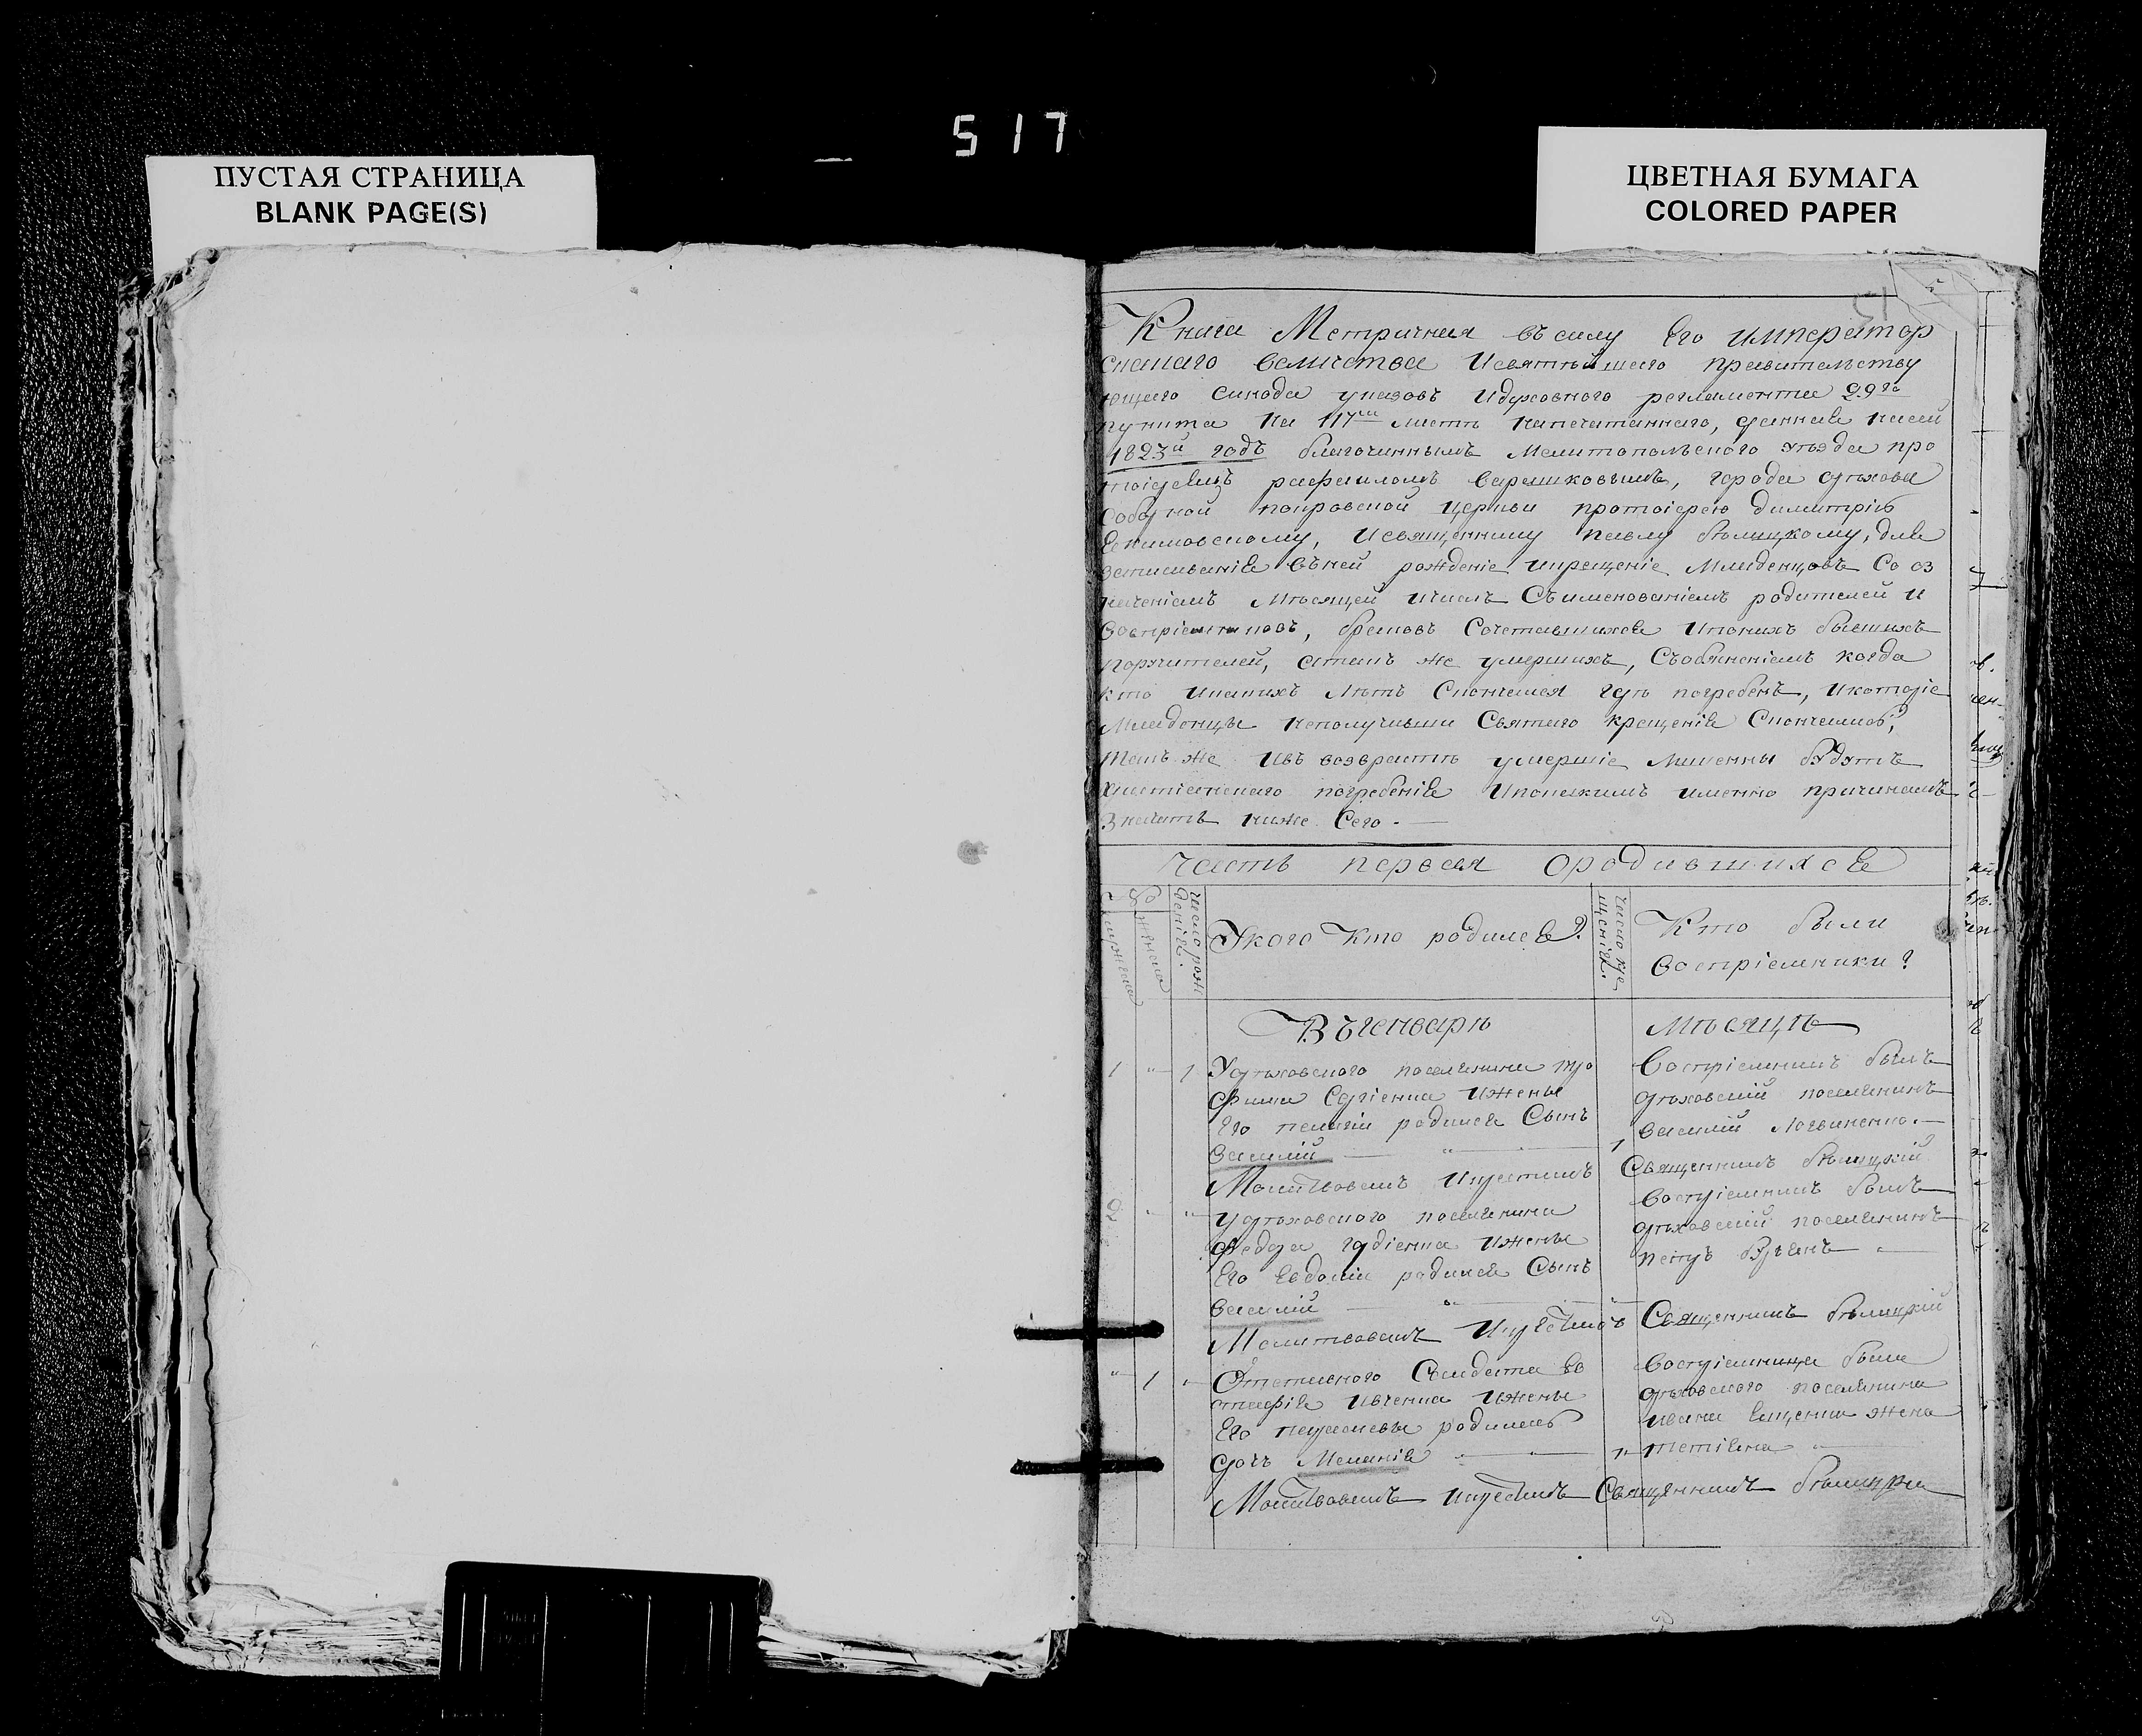 5 1 7
ПУСТАЯ СТРАНИЦА
BLANK PAGE(S)
ЦВЕТНАЯ БУМАГА
COLORED PAPER
Книга Метричная въ силу Его Император
скаго величества Исвятѣйшаго правительству
ющаго синода указовъ Идуховного регламента 29го
пункта На 117м листѣ напечатаннаго, данная насей
1823й годъ благочиннымъ Мелитопольского уѣзда про
тоіереемъ рафаиломъ города орѣхова
Соборной покровской церкви протоіерею димитрію
Исвященнику павлу бѣлицкому, для
записыванія Въней рожденіе Икрещеніе Младенцовъ Со оз
наченіемъ Мѣсяцей Ичислъ Съименованіемъ родителей и
Воспріемниковъ, браковъ Сочетавшихся Ипонихъ бывшихъ
поручителей, атакъ же умершихъ, Съобявленіемъ когда
кто Икакихъ Лѣтъ Скончался гдѣ погребенъ, Икоторіе
Младенцы Неполучивши Святаго крещенія Скончались,
также Ивъ возрастѣ умершіе Лишенны будутъ
христіанскаго погребенія Ипокакимъ именно причинамъ
Значитъ ниже Сего.
Часть первая ородившихся
№
мужеска
женска
Число рож
денія.
Укого Кто родился?
Число кре
щенія.
Кто были
Воспріемники?
Въ генварѣ Мѣсяцѣ
1 " 1 Уорѣховского поселянина тро
фима Сергіенка Ижены
Его пелагіи родился Сынъ
Василій 1
Воспріемникъ былъ
орѣховскій поселянинъ
Василій Логвиненко.
Молитвовалъ Икрестилъ Священникъ бѣлицкій
2 " " Уорѣховского поселянина
Федора гордіенка Ижены
Его Евдокіи родился Сынъ
Василій "
Воспріемникъ былъ
орѣховскій поселянинъ
петръ
Молитвовалъ Икрестилъ Священникъ бѣлицкій
" 1 " Отставного Солдата Ев
стафія Ивченка Ижены
Его родилась
дочь Меланія "
Воспріемница была
орѣховского поселянина
ивана жена
татіяна
Молитвовалъ Икрестилъ Священникъ бѣлицкій